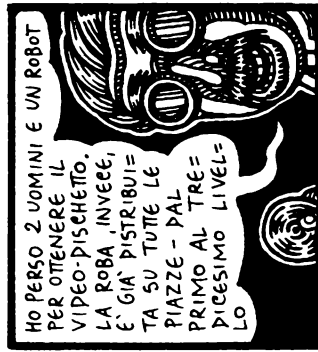 HO PERSO 2 UOMINI E UN ROBOT
PER OTTENERE IL
VIDEO-DISCHETTO.
LA ROBA INVECE,
E' GIA' DISTRIBUI=
TA SU TUTTE LE
PIAZZE - DAL
PRIMO AL TRE=
DICESIMO LIVEL=
LO